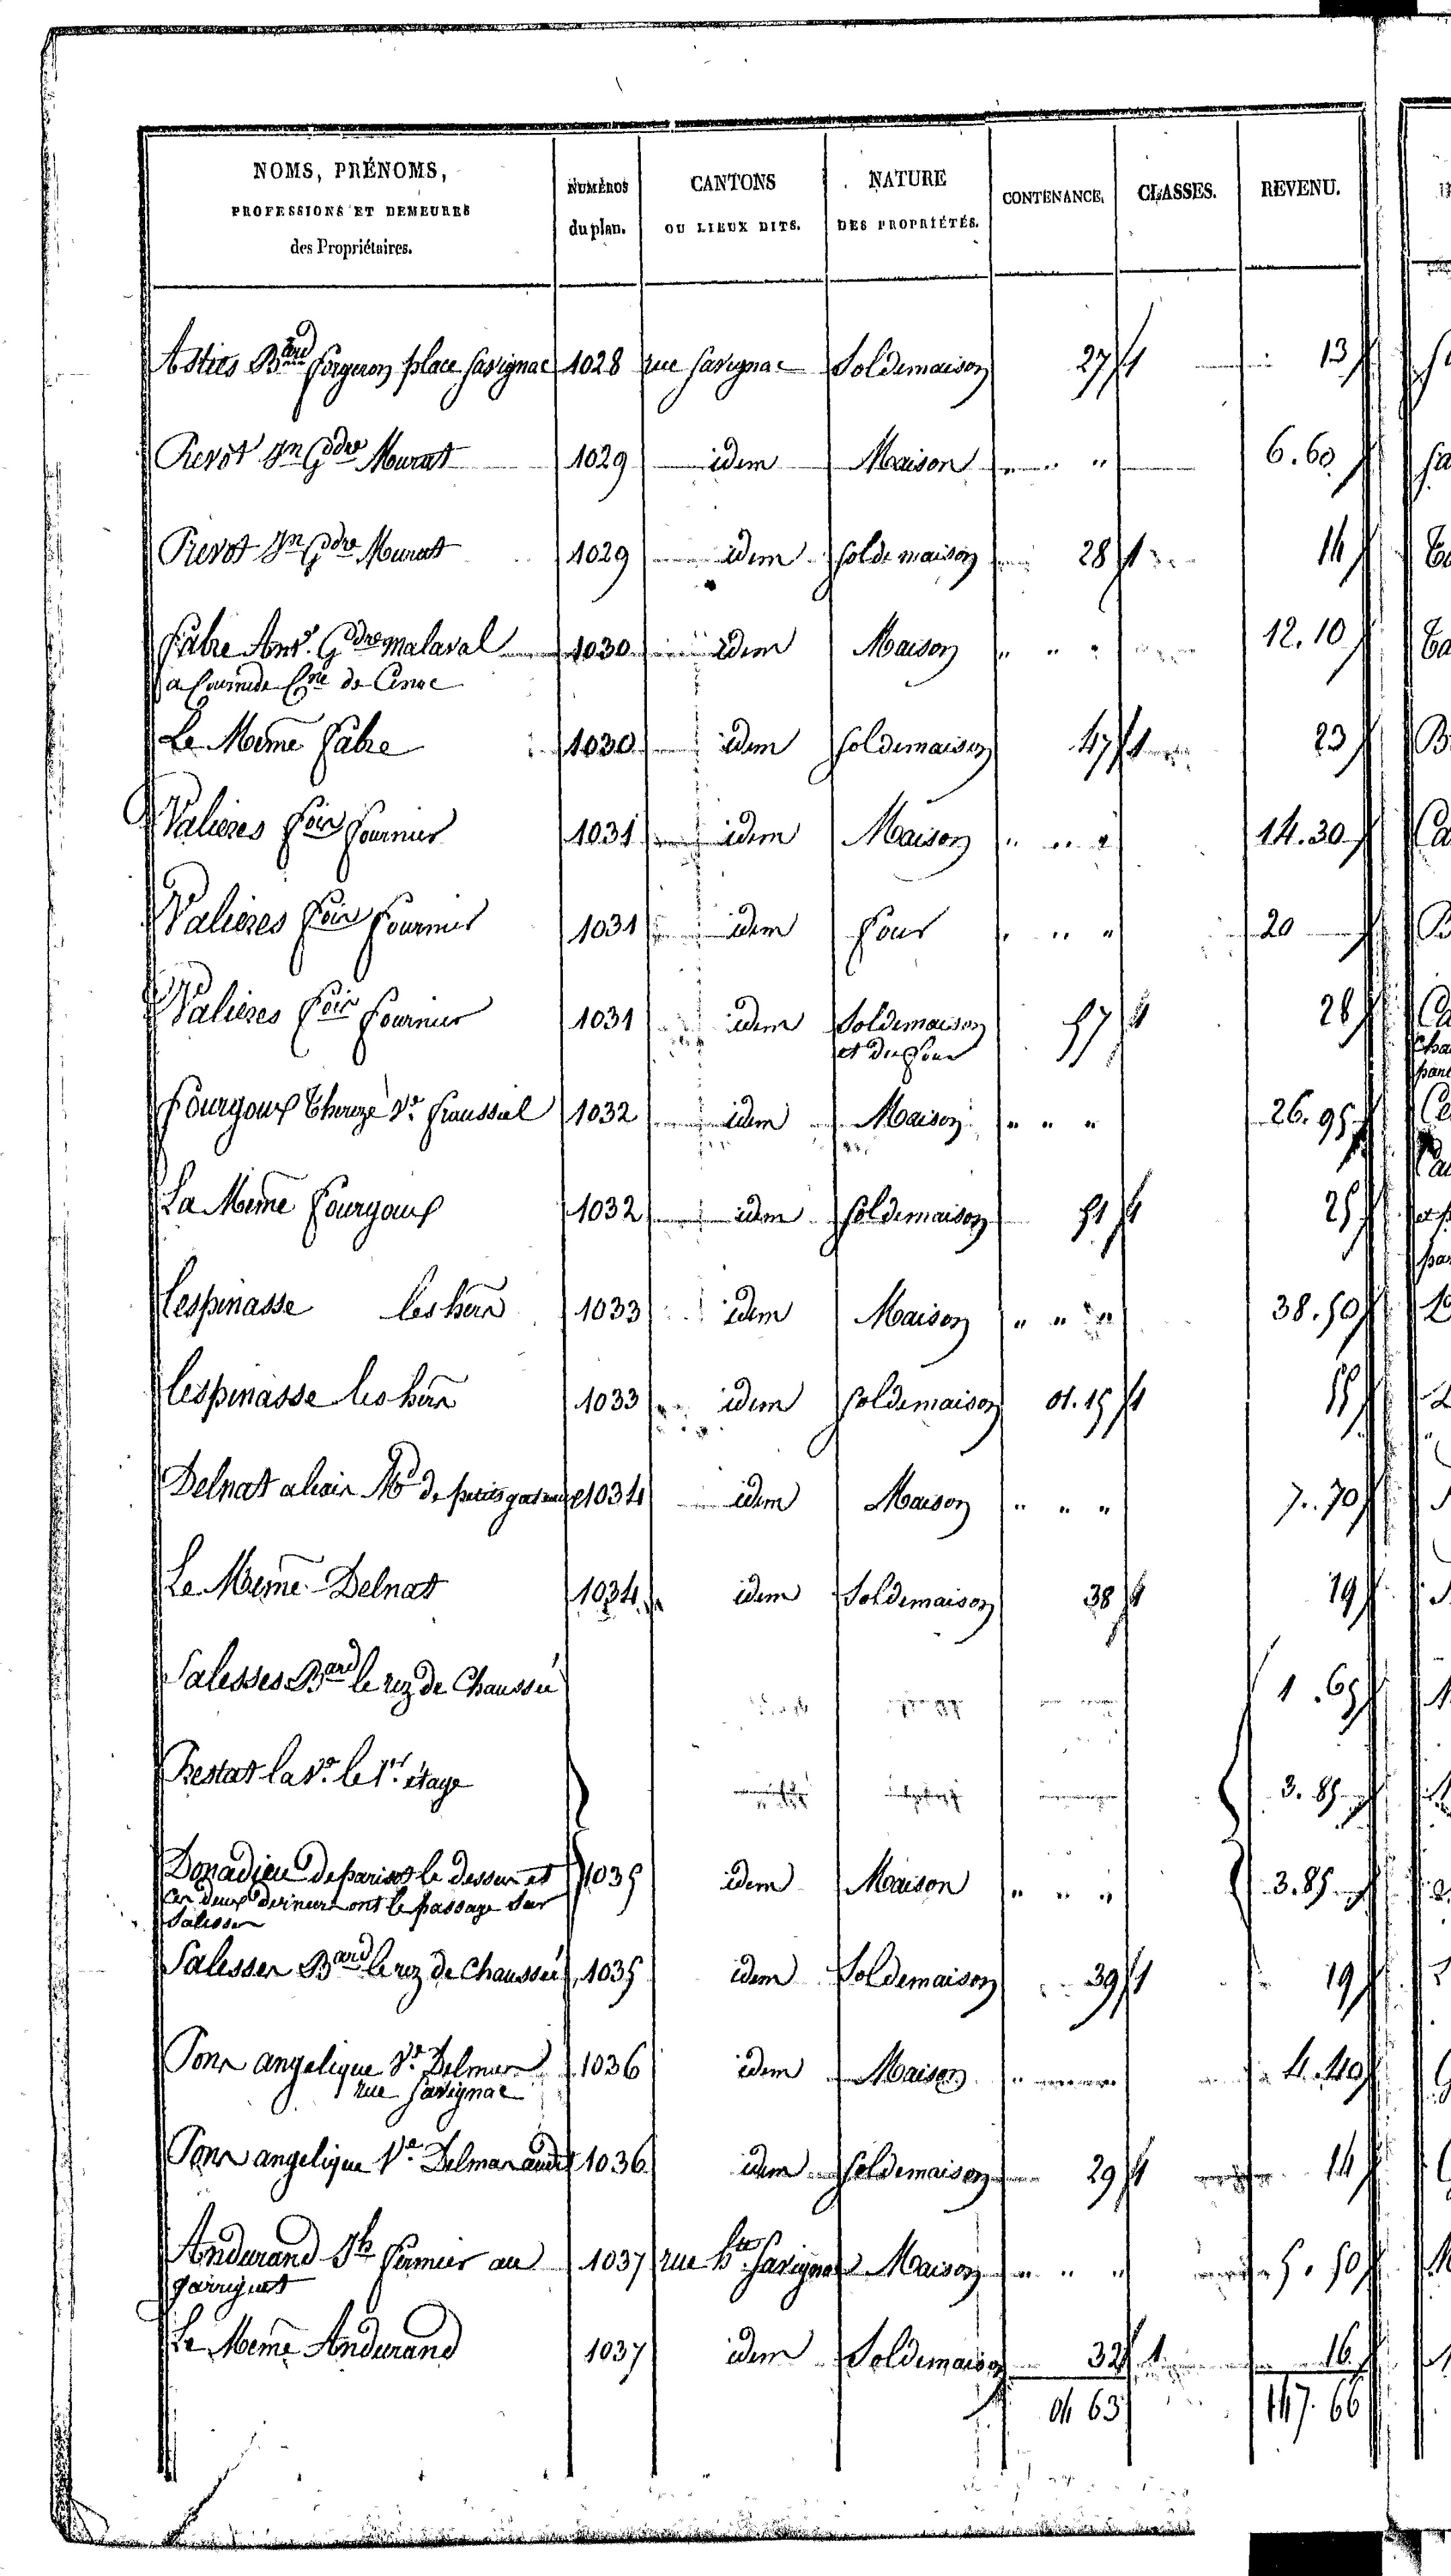 NOMS, PRÉNOMS, PROFESSIONS ET DEMEURES des Propriétaires. | NUMÉROS du plan. | CANTONS OU LIEUX DITS. | NATURE DES PROPRIÉTÉS. | CONTENANCE. | CLASSES. | REVENU.
Astics Bard forgeron place Savignac 1028 rue Savignac Sol de maison 27 1 13
Prevot Jn Gdre Murat 1029 idem Maison " " " 6.60
Prevot Jn Gdre Murat 1029 idem Sol de maison 28 1 14
Fabre Ant. Gdre Malaval 1030 idem Maison " " " 12.10
a Cne de
Le Meme Fabre 1030 idem Sol de maison 47 1 23
Valieres fois fournier 1031 idem Maison " " " 14.30
Valieres fois fournier 1031 idem four " " " 20
Valieres fois fournier 1031 idem Sol de maison 57 1 28
et du four
Fourgoux Thereze Ve Fraussal 1032 idem Maison " " " 26.95
La Meme Fourgoux 1032 idem Sol de maison 51 1 25
Lespinasse les hers 1033 idem Maison " " " 38.50
Lespinasse les hers 1033 idem Sol de maison 01.15 1 55
Delnat Md de petits gateaux 1034 idem Maison " " " 7.70
Le Meme Delnat 1034 idem Sol de maison 38 1 19
Salesses Bard le rez de Chaussée 1.65
Restat la Ve le 1er étage 3.85
Donadieu de parisot le dessus et 1035 idem Maison " " " 3.85
Ces deux derniers ont le passage sur
Salesses
Salesses Bard le rez de Chaussée 1035 idem Sol de maison 39 1 19
Pons angelique Ve Delmas 1036 idem Maison " 4.40
rue Savignac
Pons angelique Ve Delmas 1036 idem Sol de maison 29 1 14
Andurand Jh fermier au 1037 rue hte Savignac Maison " " " 5.50
garriguet
Le Meme Andurand 1037 idem Sol de maison 32 1 16
04 63 147.66